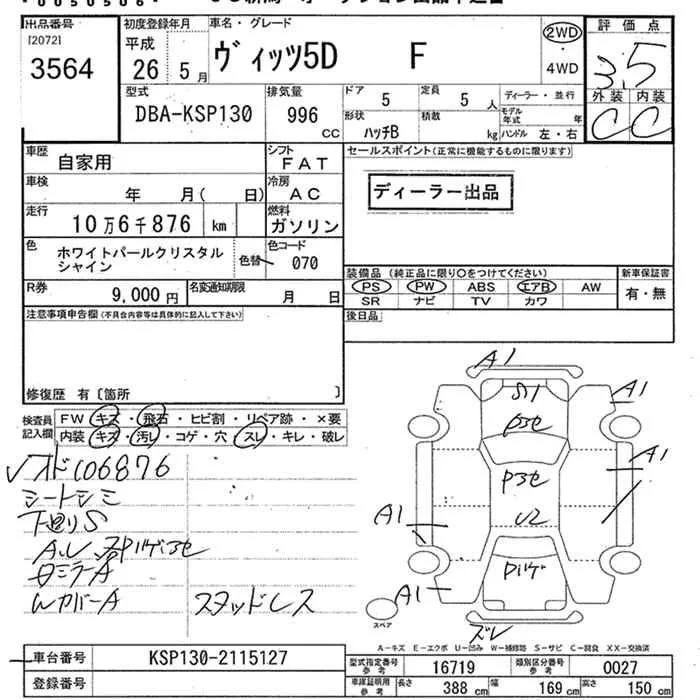 出品番号
[2072]
3564
初度登録年月
平成
26年 5月
車名・グレード
ヴィッツ5D F
2WD
・
4WD
評価点
3.5
外装 内装
C C
型式
DBA-KSP130
排気量
996 CC
ドア 5
定員 5 人
ディーラー・並行
形状 ハッチB
積載 kg
モデル年式 年
ハンドル 左・右
車歴
自家用
シフト
FAT
セールスポイント(正常に機能するものに限ります)
ディーラー出品
車検
年 月( 日)
冷房
AC
走行
10万6千876 km
燃料
ガソリン
色
ホワイトパールクリスタル
シャイン
色替
色コード
070
装備品(純正品に限り〇をつけてください)
PS PW ABS エアB AW
SR ナビ TV カワ
新車保証書
有・無
R券
9,000円
名変通知期限
月 日
後日品
注意事項申告欄(不具合内容等は具体的に記入して下さい)
修復歴 有〔箇所 〕
検査員
記入欄
FW キズ・飛石・ヒビ割・リペア跡・×要
内装 キズ・汚れ・コゲ・穴・スレ・キレ・破レ
オド106876
シートシミ
下廻りS
ミラーA
WカバーA スタッドレス
A1
S1
A1
A1
U2
A1
A1
ズレ
スペア
A-キズ E-エクボ U-凹み W-補修跡 S-サビ C-腐食 XX-交換済
車台番号 KSP130-2115127
登録番号
型式指定番号 参考 16719
類別区分番号 参考 0027
車庫証明用 参考 長さ 388 cm 幅 169 cm 高さ 150 cm